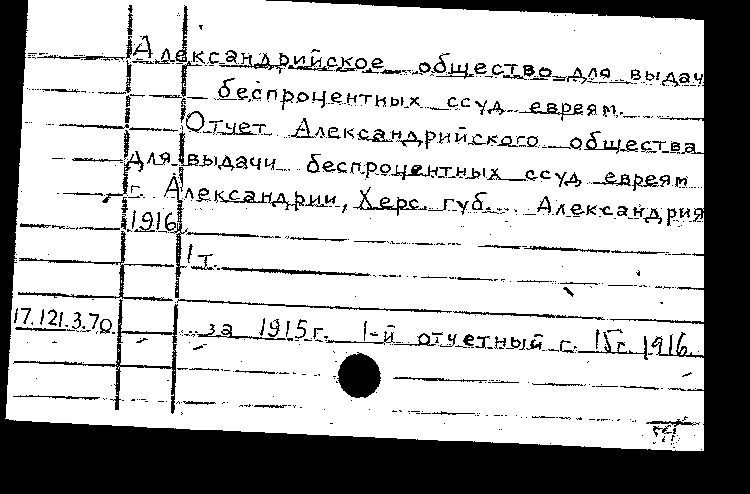 Александрийское общество для выдач
беспроцентных ссуд евреям.
Отчет Александрийского общества
для выдачи беспроцентных ссуд евреям
г. Александрии, Херс. губ. Александрия
1916
1 т.
17.121.3.70 ..за 1915 г. 1-й отчетный г. 1916.